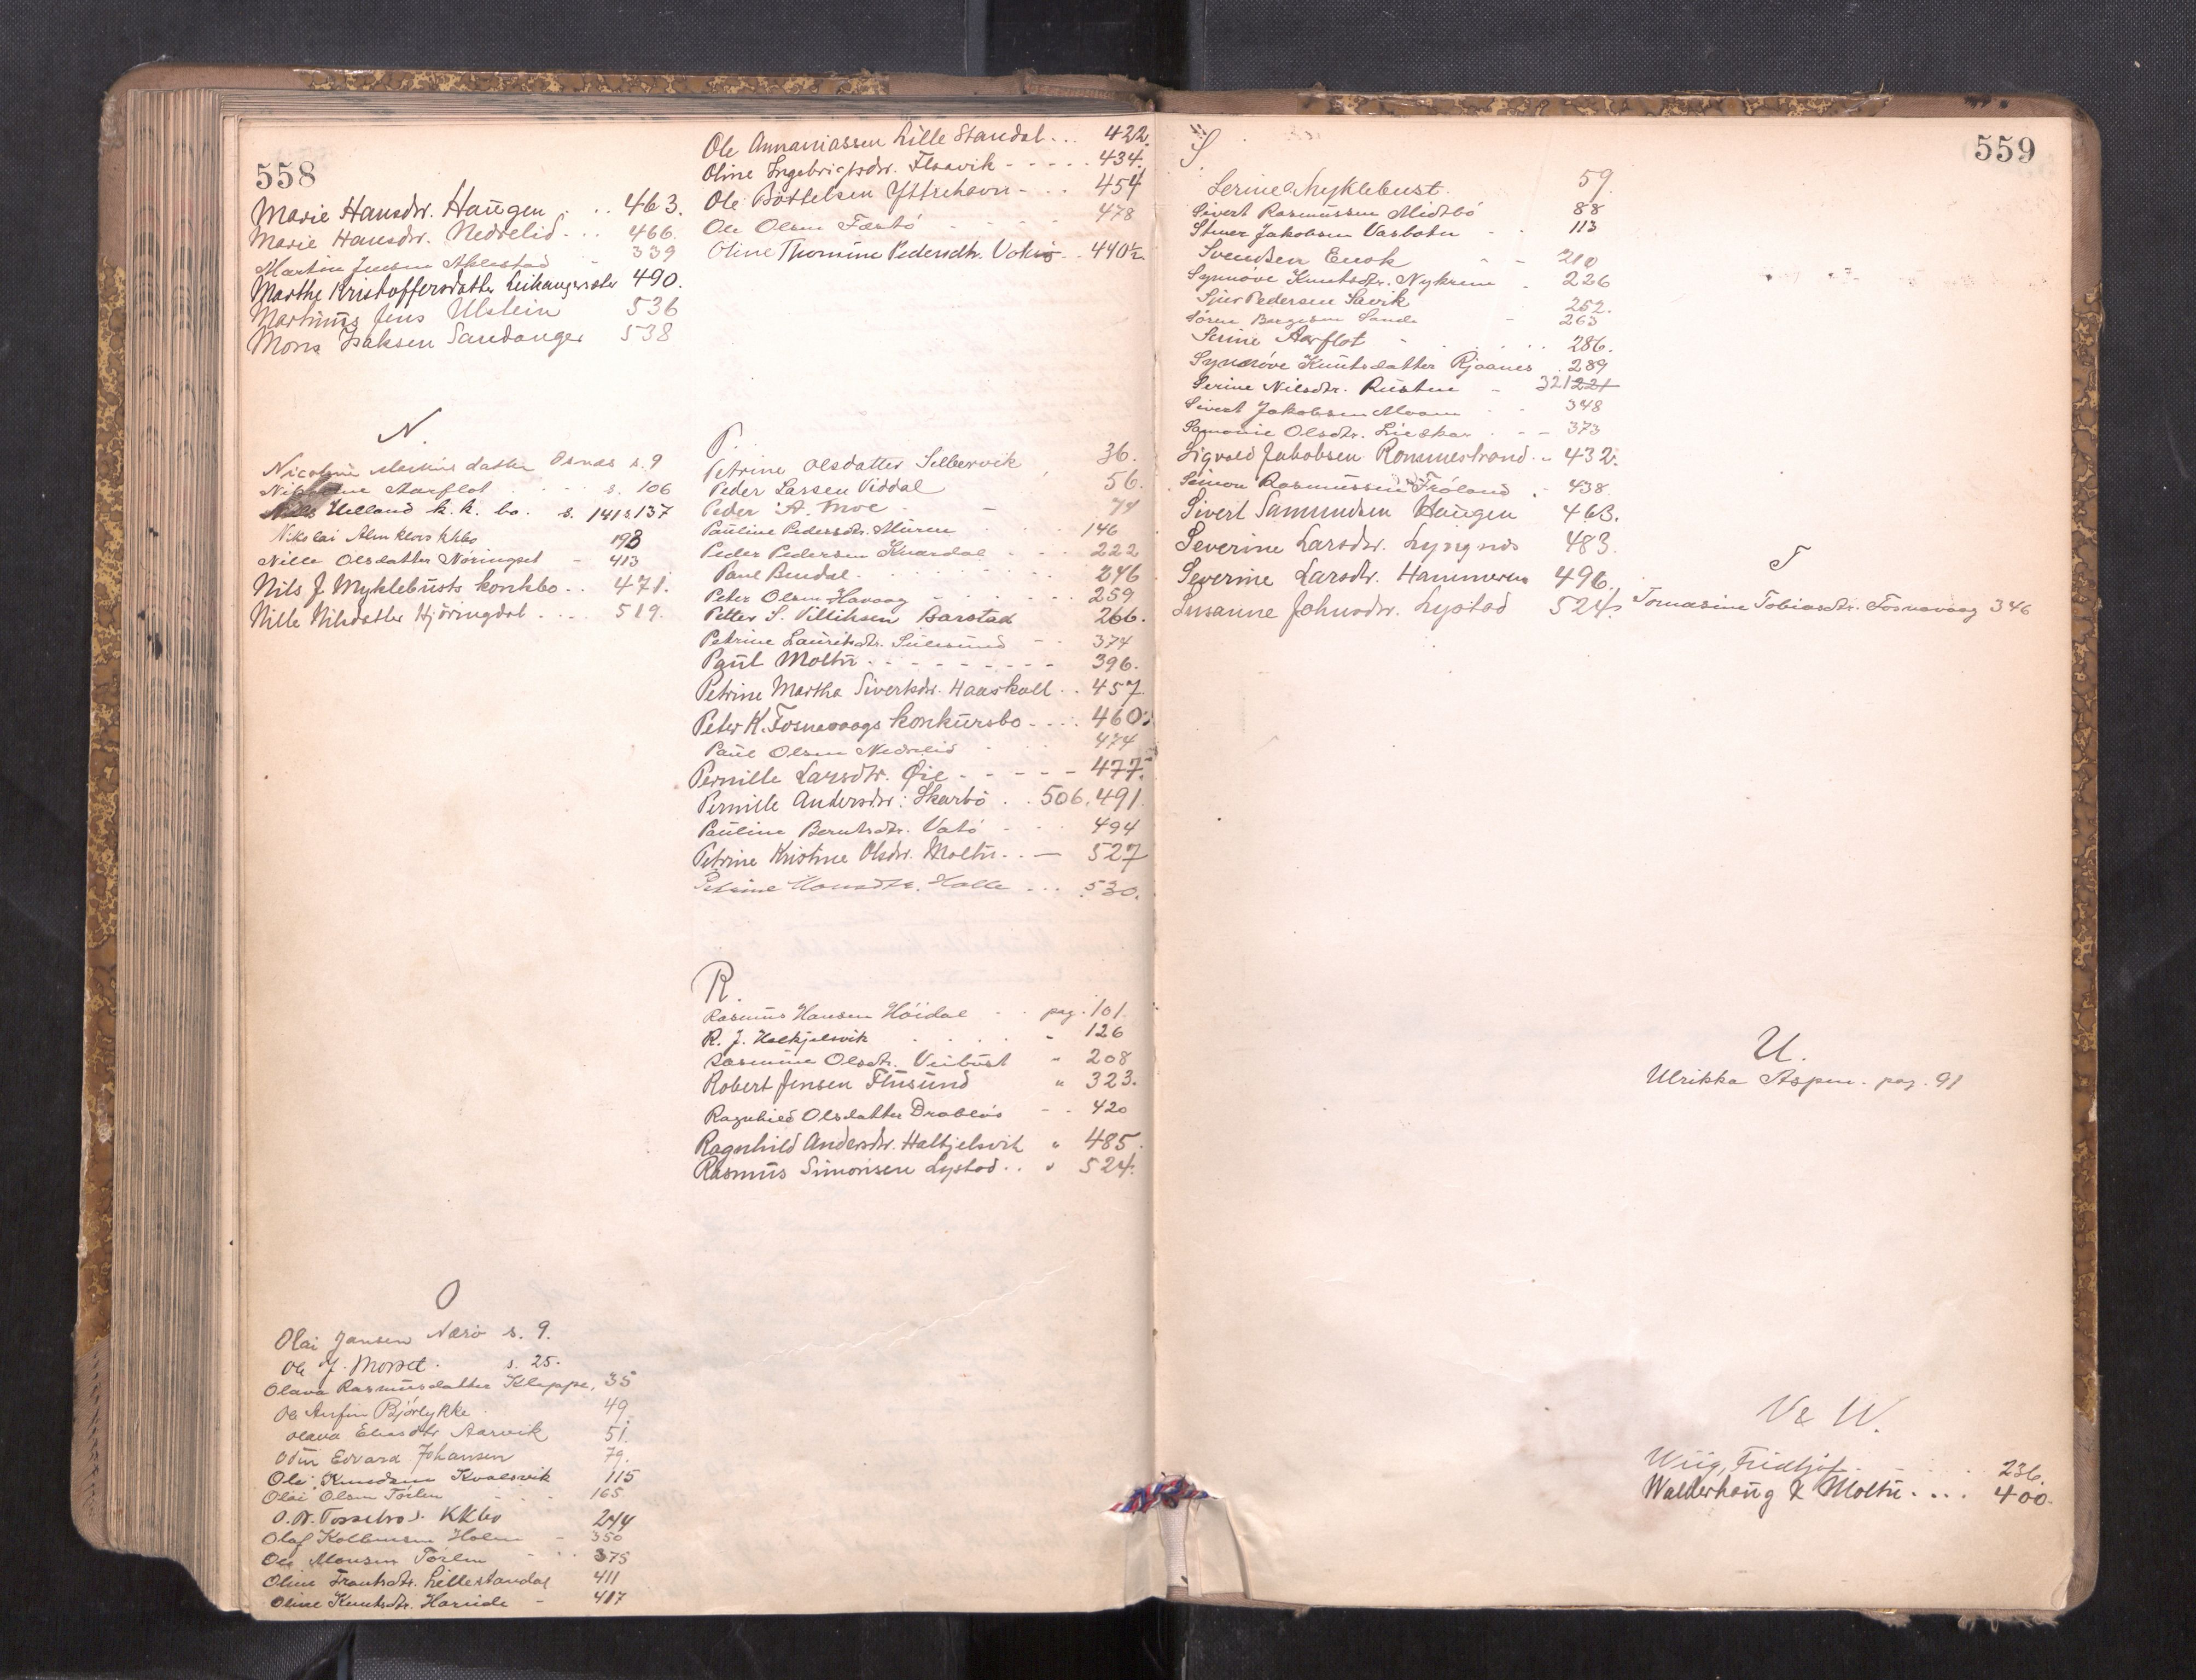 558
Marie Hansdtr. Haugen . . . 463.
Marie Hansdtr. Nedrelid . . . 466.
Martin Jensen Aklestad 339
Marthe Kristoffersdatter Leikangersæter 490.
Martinus Jens Ulstein 536
Mons Isaksen Sandanger 538
N.
Nicoline datter Osnes s. 9
Aarflot s. 106
Nils Helland k. k. bo. s. 141 s. 137
Nikolai Almklovs kkbo 198
Nille Olsdatter Nøringset - 413
Nils J Myklebusts konkbo . . 471.
Nille Nilsdatter Hjöringdal . . . 519.
O
Olai Jansen Nærö s. 9.
Ole J. Morset. s. 25.
Olava Rasmusdatter Kleppe, 35
Ole Arfin Björlykke 49.
Olava Eliasdtr Aarvik 51.
Odin Edvard Johansen 79.
Ole Knudsen Kvalsvik 115
Olai Olsen Törlen 165
O. N. Tosselvos. KKbo 244
Olaf Kolbensen Holm - 350
Ole Monsen Törlen - . . 375
Oline Frantsdtr. Lillestandal 411
Oline Knutsdtr. Hareide - 417
Ole Annaniassen Lille Standal . . . 422.
Oline Ingebrigtsdr. Flaavik - - - - - 434.
Ole Bottelsen Yttrehavn - . . 454
Ole Olsen Fæstö - - - - 478
Oline Thomine Pedersdtr. Voksö . . 440½
P.
Petrine Olsdatter Selbervik 36.
Peder Larsen Viddal 56.
Peder A. Moe - 74
Pauline Pedersdtr. Müren 146
Peder Pedersen Kvardal - - - 222
Paul Bendal . 246
Peter Olsen Havaag - - . . . 259
Petter S. Villiksen Barstad 266.
Petrine Lauritsdtr. Sulesund - - 374
Paul Moltu . - - - - - - - - - 396.
Petrine Martha Sivertsdtr. Haaskoll . . 457.
Peter K. Fosnavaags konkursbo - . . . 460.
Paul Olsen Nedrelid 474
Pernille Larsdtr. Øie - - - - - 477.
Pernille Andersdtr: Skarbö . . 506. 491.
Pauline Berntsdtr. Vatö - - - 494
Petrine Kristine Olsdtr. Moltu . . — 527
Petrine Hansdtr. Holle . . . 530.
R.
Rasmus Hansen Höidal - - pag. 101.
R. J. Halkjelsvik - 126
Rasmine Olsdtr. Veibust " 208
Robert Jensen Flusund " 323.
Ragnhild Olsdatter Drablös - - 420
Ragnhild Andersdtr. Halkjelsvik " 485.
Rasmus Simonsen Lystad . . " 524.
559
S.
Serine Myklebust. 59.
Sivert Rasmussen Midtbö 88
Stener Jakobsen Vasbotn - - 113
Svendsen Enok - - 210
Synnöve Knutsdtr. Nykrem - 226
Sjur Pedersen Savik 252.
Sören Bergesen Sande - 263
Serine Aarflot - . . . . 286.
Synnöve Knutsdatter Rjaanes . 289
Serine Nilsdtr. Rusten - 321 221
Sivert Jakobsen Moam - - 348
Samonie Olsdtr. Lieskar . - - 373
Sigvald Jakobsen Rommestrand . . 432.
Simon Rasmussen Fröland . - 438.
Sivert Samundsen Haugen 463.
Severine Larsdtr. Lyngnes 483.
Severine Larsdtr. Hammeren 496.
Susanne Johnsdtr. Lystad 524.
T
Tomasine Tobiasdtr. Fosnavaag 346
U.
Ulrikka Aspen. pag. 91
V & W.
Wiig, Fridtjof . - - . . . 236.
Walderhaug & Moltu . . . . 400.